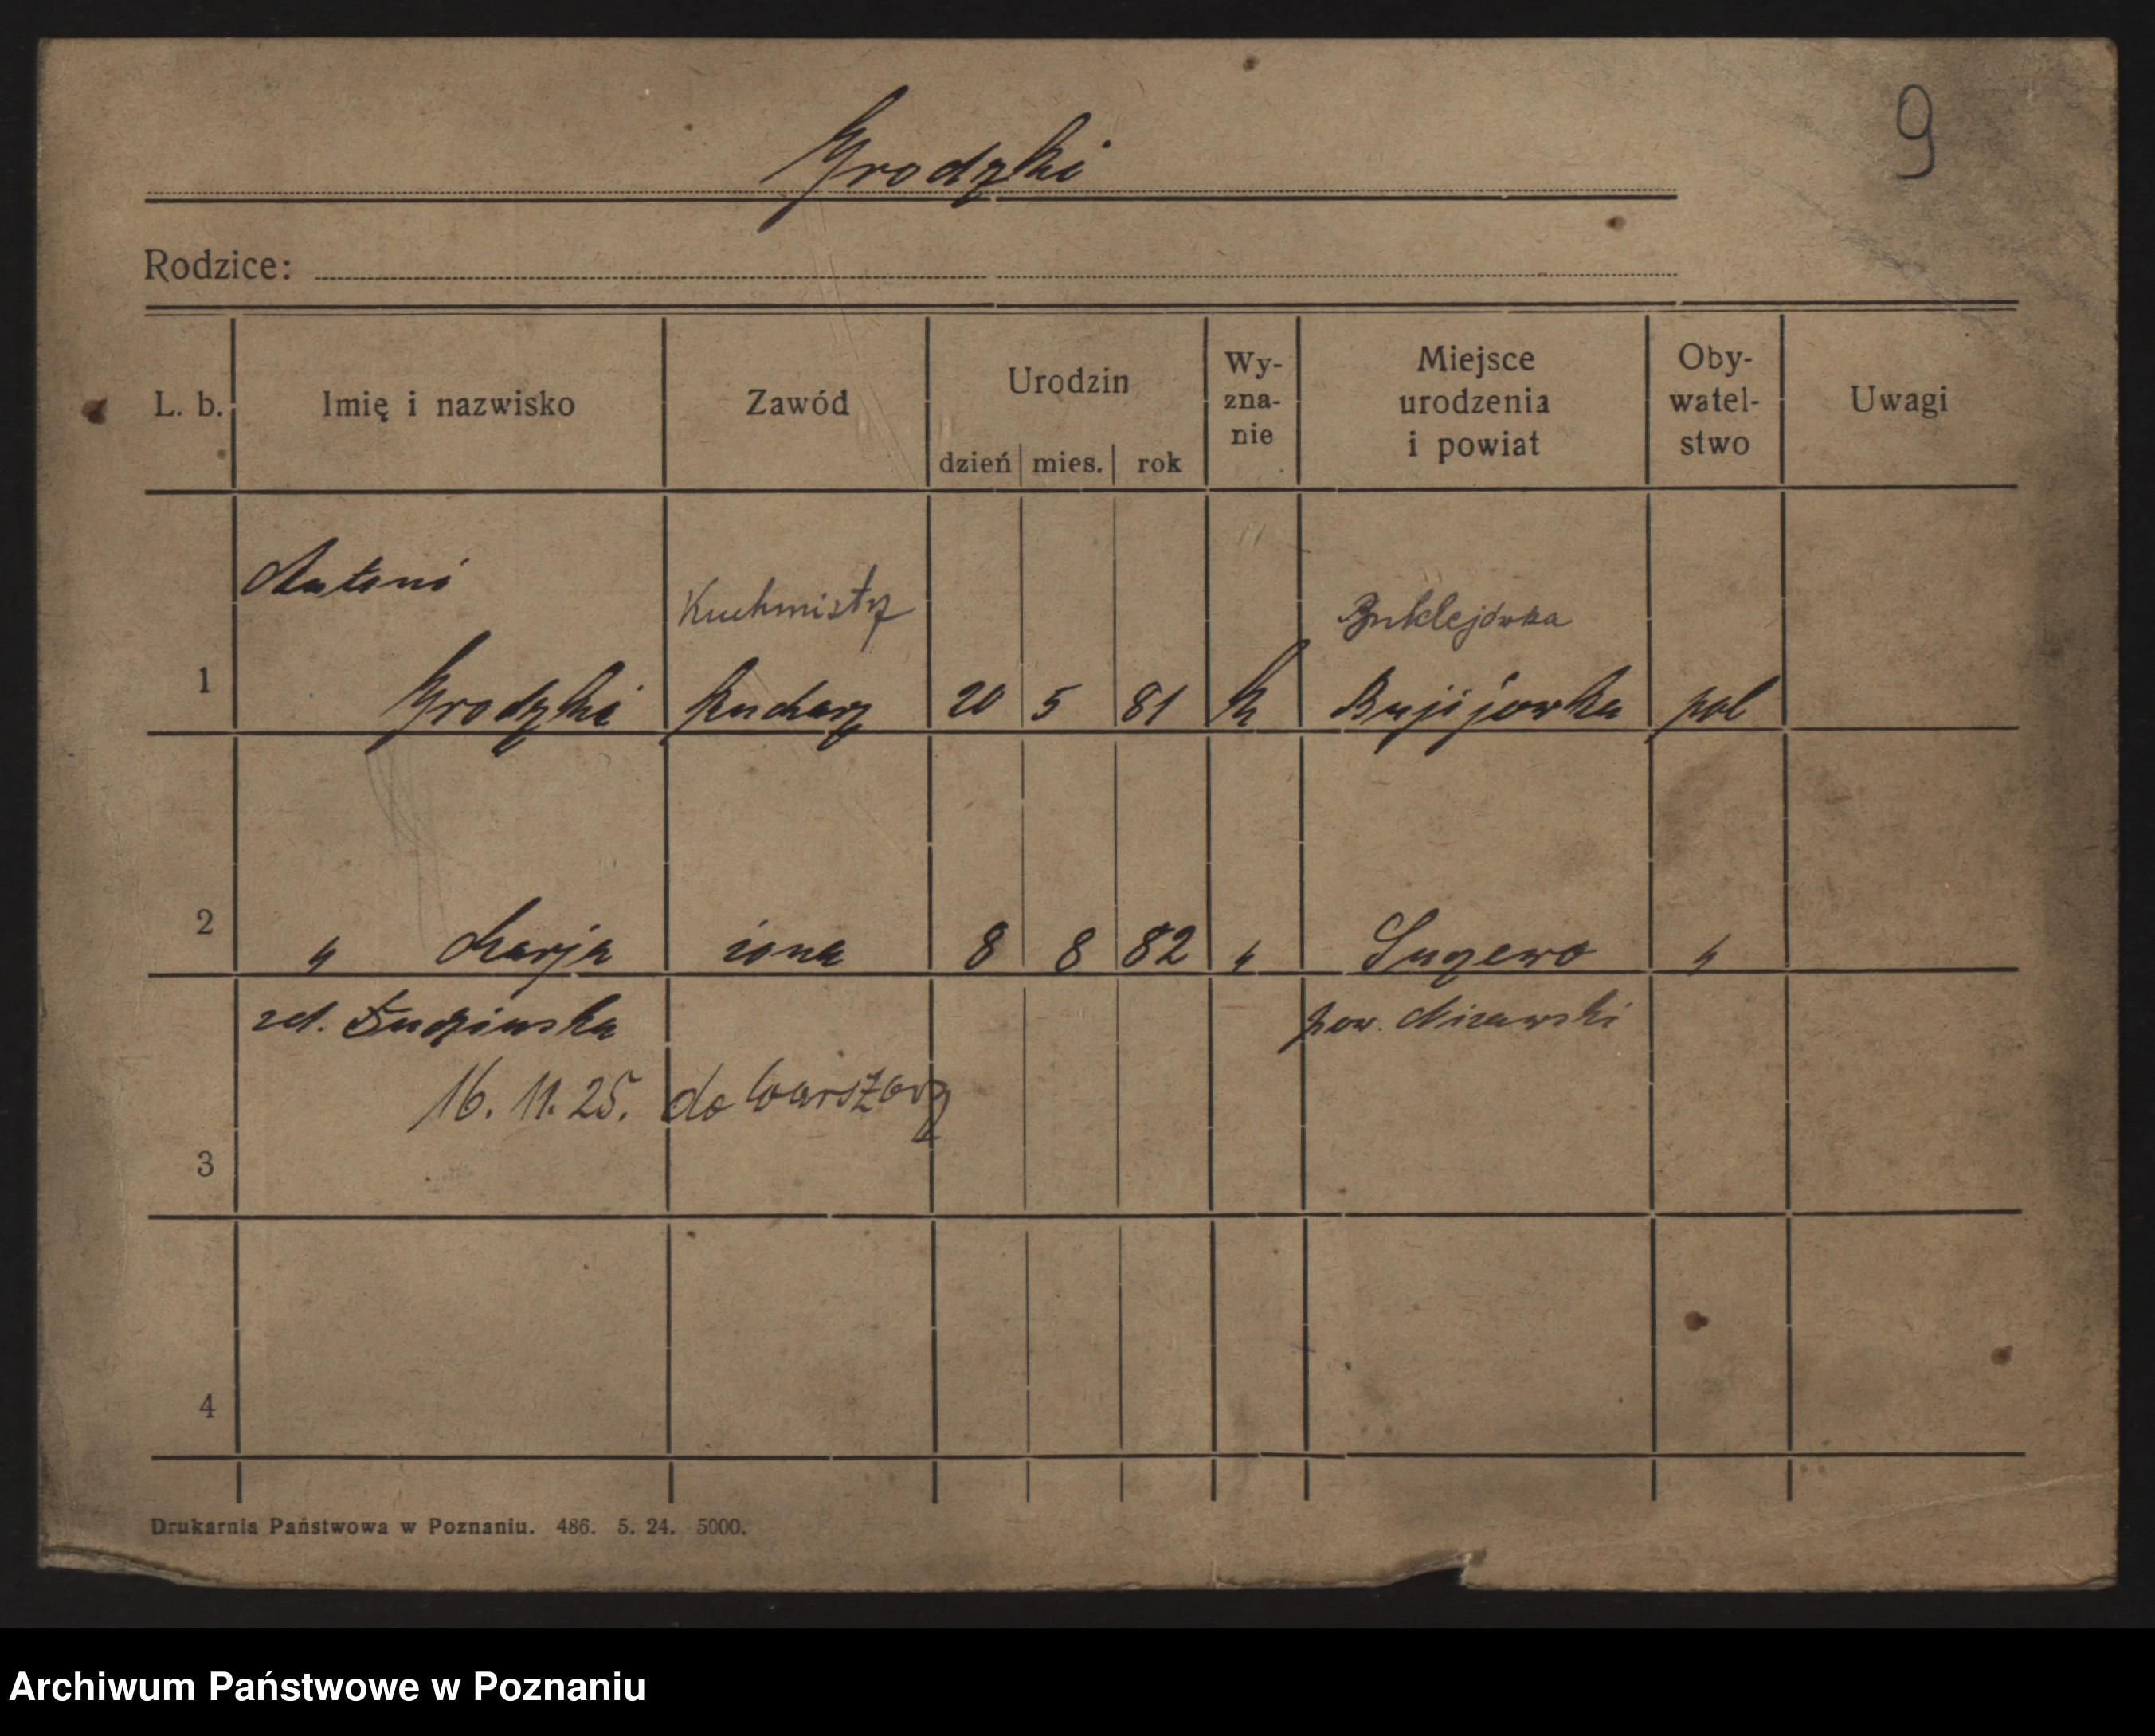 9
Grodzki
Rodzice:
L. b. Imię i nazwisko Zawód Urodzin dzień mies. rok Wy-zna-nie Miejsce urodzenia i powiat Oby-watel-stwo Uwagi
Antoni
Kuchmistrz Buklejówka
1 Grodzki kucharz 20 5 81 k pol
2 " Marja żona 8 8 82 " "
pow.
16. 11. 25. do Warszawy
3
4
Drukarnia Państwowa w Poznaniu. 486. 5. 24. 5000.
Archiwum Państwowe w Poznaniu